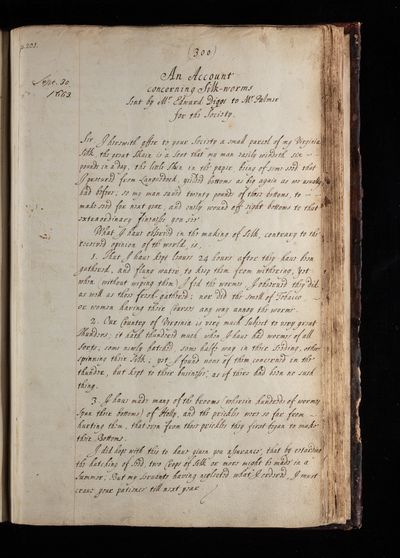 p. 201.
(300)
Sept. 30
1663.
An Account
concerning Silk-worms
Sent by Mr Edward Diggs to Mr Palmer
for the Society.
Sir, I herewith offer to your Society a small parcel of my Virginia
Silk, the great Skain is a sort that my man easily windeth six
pounds in a day, the little Skain in the paper being of some seed that
I procured from Languedock, yielded bottoms as big again as we usually
had before; so my man saved twenty pounds of those bottoms, to
made seed for next year, and only wound off eight bottoms to that
extraordinary fineness you see.
What I have observed in the making of Silk, contrary to the
received opinion of the world, is,
1. That I have kept leaves 24 hours after they have been
gathered, and flung water to keep them from withering, yet
when (without wiping them) I fed the worms, I observed they did
as well as those fresh gathered; nor did the smell of Tobacco
or women having their Courses any way annoy the worms.
2. Our Country of Virginia is very much subject to very great
thunders; it hath thundred much when I have had worms of all
sorts, some newly hatched some halfe way in their feeding, others
spinning their Silk; yet I found none of them concerned in the
thunder, but kept to their businesse, as if there had been no such
thing.
3. I have made many of the brooms wherein hundreds of wormes
spun their bottoms, of Holly, and the prickles were so far from
hurting them, that even from those prickles they first began to make
their Bottoms.
I did hope with this to have given you assurance, that by retarding
the hatching of seed, two Crops of Silk or more might be made in a
Summer; But my servants having neglected what I ordered, I must
crave your patience till next year.